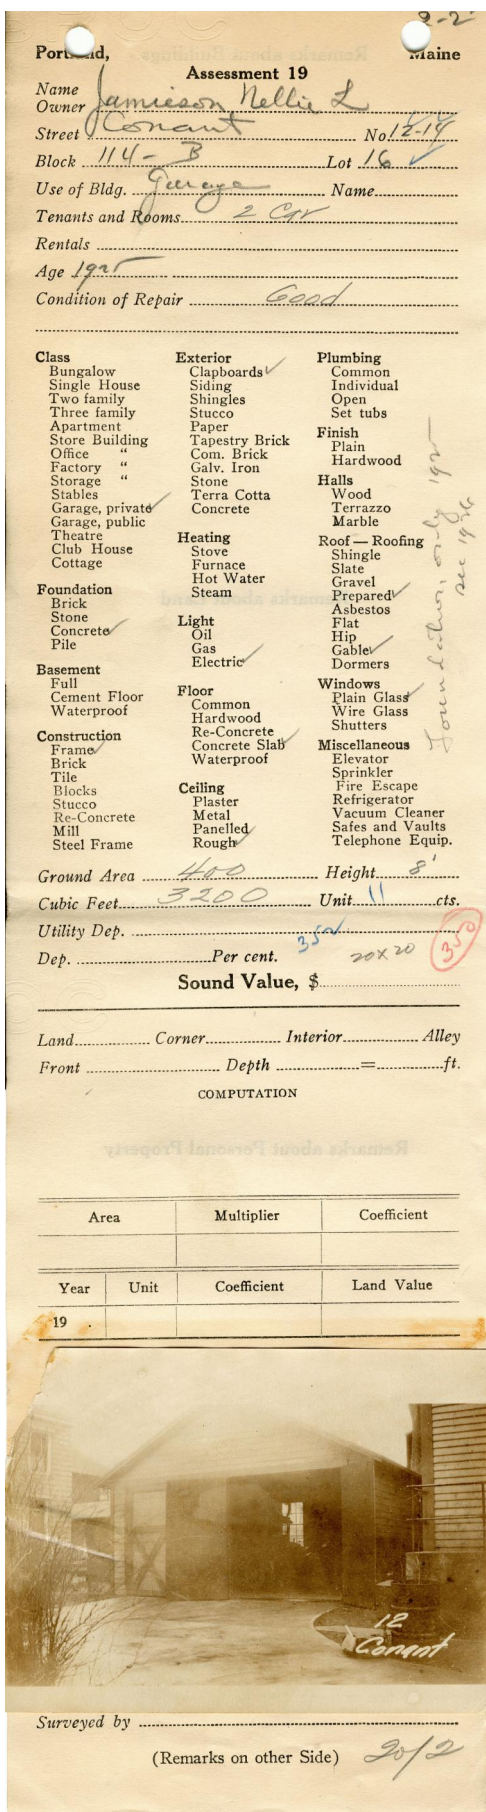 2-2
Portland, Maine
Assessment 19
Name
Owner Jamieson Nellie L
Street Conant No. 12-14
Block 114-B Lot 16 ✓
Use of Bldg. Garage Name
Tenants and Rooms 2 Car
Rentals
Age 1925
Condition of Repair Good
Class
Bungalow
Single House
Two family
Three family
Apartment
Store Building
Office "
Factory "
Storage "
Stables
Garage, private ✓
Garage, public
Theatre
Club House
Cottage
Foundation
Brick
Stone
Concrete ✓
Pile
Basement
Full
Cement Floor
Waterproof
Construction
Frame ✓
Brick
Tile
Blocks
Stucco
Re-Concrete
Mill
Steel Frame
Exterior
Clapboards ✓
Siding
Shingles
Stucco
Paper
Tapestry Brick
Com. Brick
Galv. Iron
Stone
Terra Cotta
Concrete
Heating
Stove
Furnace
Hot Water
Steam
Light
Oil
Gas
Electric ✓
Floor
Common
Hardwood
Re-Concrete
Concrete Slab ✓
Waterproof
Ceiling
Plaster
Metal
Panelled
Rough ✓
Plumbing
Common
Individual
Open
Set tubs
Finish
Plain
Hardwood
Halls
Wood
Terrazzo
Marble
Roof — Roofing
Shingle
Slate
Gravel
Prepared ✓
Asbestos
Flat
Hip
Gable ✓
Dormers
Windows
Plain Glass ✓
Wire Glass
Shutters
Miscellaneous
Elevator
Sprinkler
Fire Escape
Refrigerator
Vacuum Cleaner
Safes and Vaults
Telephone Equip.
Foundation only 1925
see 1926
Ground Area 400 Height 8'
Cubic Feet 3200 Unit 11 cts.
Utility Dep.
352
350
Dep. Per cent. 20 x 20
Sound Value, $
Land Corner Interior Alley
Front Depth = ft.
COMPUTATION
Remarks about Personal Property
Area Multiplier Coefficient
Year Unit Coefficient Land Value
19
12
Conant
Surveyed by
(Remarks on other Side) 20/2